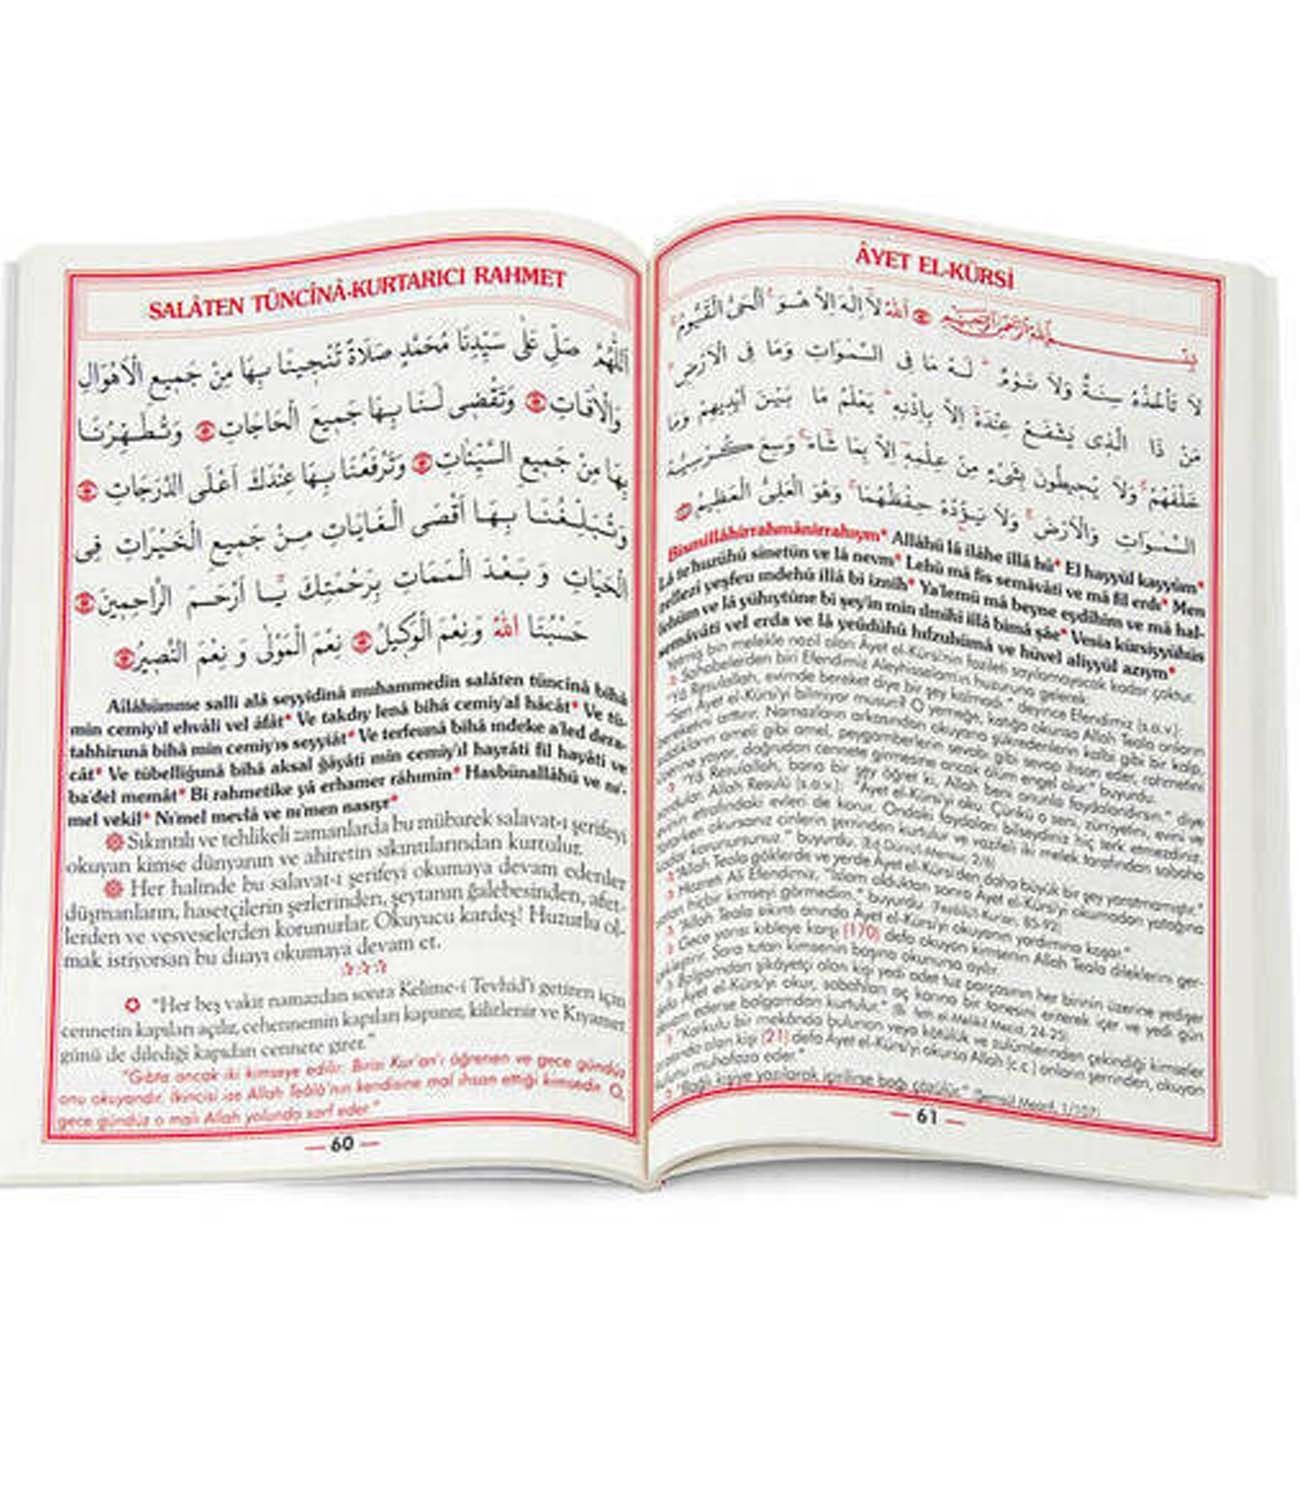 SALÂTEN TÜNCÎNÂ-KURTARICI RAHMET
اَللّٰهُمَّ صَلِّ عَلٰى سَيِّدِنَا مُحَمَّدٍ صَلَاةً تُنْجِينَا بِهَا مِنْ جَمِيعِ الْاَهْوَالِ
وَالْاٰفَاتِ وَتَقْضِى لَنَا بِهَا جَمِيعَ الْحَاجَاتِ وَتُطَهِّرُنَا
بِهَا مِنْ جَمِيعِ السَّيِّئَاتِ وَتَرْفَعُنَا بِهَا عِنْدَكَ اَعْلَى الدَّرَجَاتِ
وَتُبَلِّغُنَا بِهَا اَقْصَى الْغَايَاتِ مِنْ جَمِيعِ الْخَيْرَاتِ فِى
الْحَيَاتِ وَبَعْدَ الْمَمَاتِ بِرَحْمَتِكَ يَا اَرْحَمَ الرَّاحِمِينَ
حَسْبُنَا اللّٰهُ وَنِعْمَ الْوَكِيلُ نِعْمَ الْمَوْلٰى وَ نِعْمَ النَّصِيرُ
Allâhümme salli alâ seyyidinâ muhammedin salâten tüncînâ bihâ
min cemiy'ıl ehvâli vel âfât* Ve takdıy lenâ bihâ cemiy'al hâcât* Ve tü-
tahhirunâ bihâ min cemiy'ıs seyyiât* Ve terfeunâ bihâ ındeke a'led dera-
cât* Ve tübelliğunâ bihâ aksal ğâyâti min cemiy'ıl hayrâti fil hayâti ve
ba'del memât* Bi rahmetike yâ erhamer râhımîn* Hasbünallâhü ve nı'-
mel vekil* Nı'mel mevlâ ve nı'men nasıyr*
Sıkıntılı ve tehlikeli zamanlarda bu mübarek salavat-ı şerifeyi
okuyan kimse dünyanın ve ahiretin sıkıntılarından kurtulur.
Her halinde bu salavat-ı şerifeyi okumaya devam edenler
düşmanların, hasetçilerin şerlerinden, şeytanın ğalebesinden, afet-
lerden ve vesveselerden korunurlar. Okuyucu kardeş! Huzurlu ol-
mak istiyorsan bu duayı okumaya devam et.
"Her beş vakit namazdan sonra Kelime-i Tevhid'i getiren için
cennetin kapıları açılır, cehennemin kapıları kapanır, kilitlenir ve Kıyamet
günü de dilediği kapıdan cennete girer."
"Gıbta ancak iki kimseye edilir. Birisi Kur'an'ı öğrenen ve gece gündüz
onu okuyandır. İkincisi ise Allah Teâlâ'nın kendisine mal ihsan ettiği kimsedir. O,
gece gündüz o malı Allah yolunda sarf eder."
60
ÂYET EL-KÜRSİ
بِسْمِ اللّٰهِ الرَّحْمٰنِ الرَّحِيمِ اَللّٰهُ لَا اِلٰهَ اِلَّا هُوَ الْحَىُّ الْقَيُّومُ
لَا تَأْخُذُهُ سِنَةٌ وَلَا نَوْمٌ لَهُ مَا فِى السَّمٰوَاتِ وَمَا فِى الْاَرْضِ
مَنْ ذَا الَّذِى يَشْفَعُ عِنْدَهُ اِلَّا بِاِذْنِهِ يَعْلَمُ مَا بَيْنَ اَيْدِيهِمْ وَمَا
خَلْفَهُمْ وَلَا يُحِيطُونَ بِشَىْءٍ مِنْ عِلْمِهِ اِلَّا بِمَا شَاءَ وَسِعَ كُرْسِيُّهُ
السَّمٰوَاتِ وَالْاَرْضَ وَلَا يَؤُدُهُ حِفْظُهُمَا وَهُوَ الْعَلِىُّ الْعَظِيمُ
Bismillâhirrahmânirrahıym* Allâhü lâ ilâhe illâ hû* El hayyül kayyûm*
Lâ te'huzühû sinetün ve lâ nevm* Lehû mâ fis semâvâti ve mâ fil erdı* Men
zellezî yeşfeu ındehû illâ bi iznih* Ya'lemü mâ beyne eydîhim ve mâ hal-
fehüm ve lâ yühıytûne bi şey'in min ılmihî illâ bimâ şâe* Vesia kürsiyyühüs
semâvâti vel erda ve lâ yeûdühû hıfzuhümâ ve hüvel aliyyül azıym*
Yetmiş bin melekle nazil olan Âyet el-Kürsi'nin fazileti sayılamayacak kadar çoktur.
Sahabelerden biri Efendimiz Aleyhisselam'ın huzuruna gelerek:
"Yâ Resulallah, evimde bereket diye bir şey kalmadı." deyince Efendimiz (s.a.v.):
"Sen Âyet el-Kürsi'yi bilmiyor musun? O yemeğe, katığa okursa Allah Teala onların
bereketini arttırır. Namazların arkasından okuyana şükredenlerin kalbi gibi bir kalp,
sadıkların ameli gibi amel, peygamberlerin sevabı gibi sevap ihsan eder, rahmetini
üzerine yayar, doğrudan cennete girmesine ancak ölüm engel olur." buyurdu.
"Yâ Resulallah, bana bir şey öğret ki, Allah beni onunla faydalandırsın." diye
Allah Resulü (s.a.v.): "Âyet el-Kürsi'yi oku. Çünkü o seni, zürriyetini, evini ve
evinin etrafındaki evleri de korur. Ondaki faydaları bilseydiniz hiç terk etmezdiniz.
Yatarken okursanız cinlerin şerrinden kurtulur ve vazifeli iki melek tarafından sabaha
kadar korunursunuz." buyurdu. (Ed Dürrü'l-Mensur, 2/6)
"Allah Teala göklerde ve yerde Âyet el-Kürsi'den daha büyük bir şey yaratmamıştır."
Hazreti Ali Efendimiz, "İslam olduktan sonra Âyet el-Kürsi'yi okumadan yatağına
yatan hiçbir kimseyi görmedim." buyurdu.
"Allah Teala sıkıntı anında Âyet el-Kürsi'yi okuyanın yardımına koşar."
Gece yarısı kıbleye karşı (170) defa okuyan kimsenin Allah Teala dileklerini ger-
çekleştirir. Sara tutan kimsenin başına okunursa ayılır.
Balgamdan şikâyetçi olan kişi yedi adet tuz parçasının her birinin üzerine yedişer
defa Âyet el-Kürsi'yi okur, sabahları aç karına bir tanesini eriterek içer ve yedi gün
devam ederse balgamdan kurtulur."
"Korkulu bir mekânda bulunan veya kötülük ve zulümlerinden çekindiği kimseler
olan kişi (21) defa Âyet el-Kürsi'yi okursa Allah (c.c.) onların şerrinden, okuyan
muhafaza eder."
"Bağlı kişiye yazılarak içirilirse bağı çözülür."
61